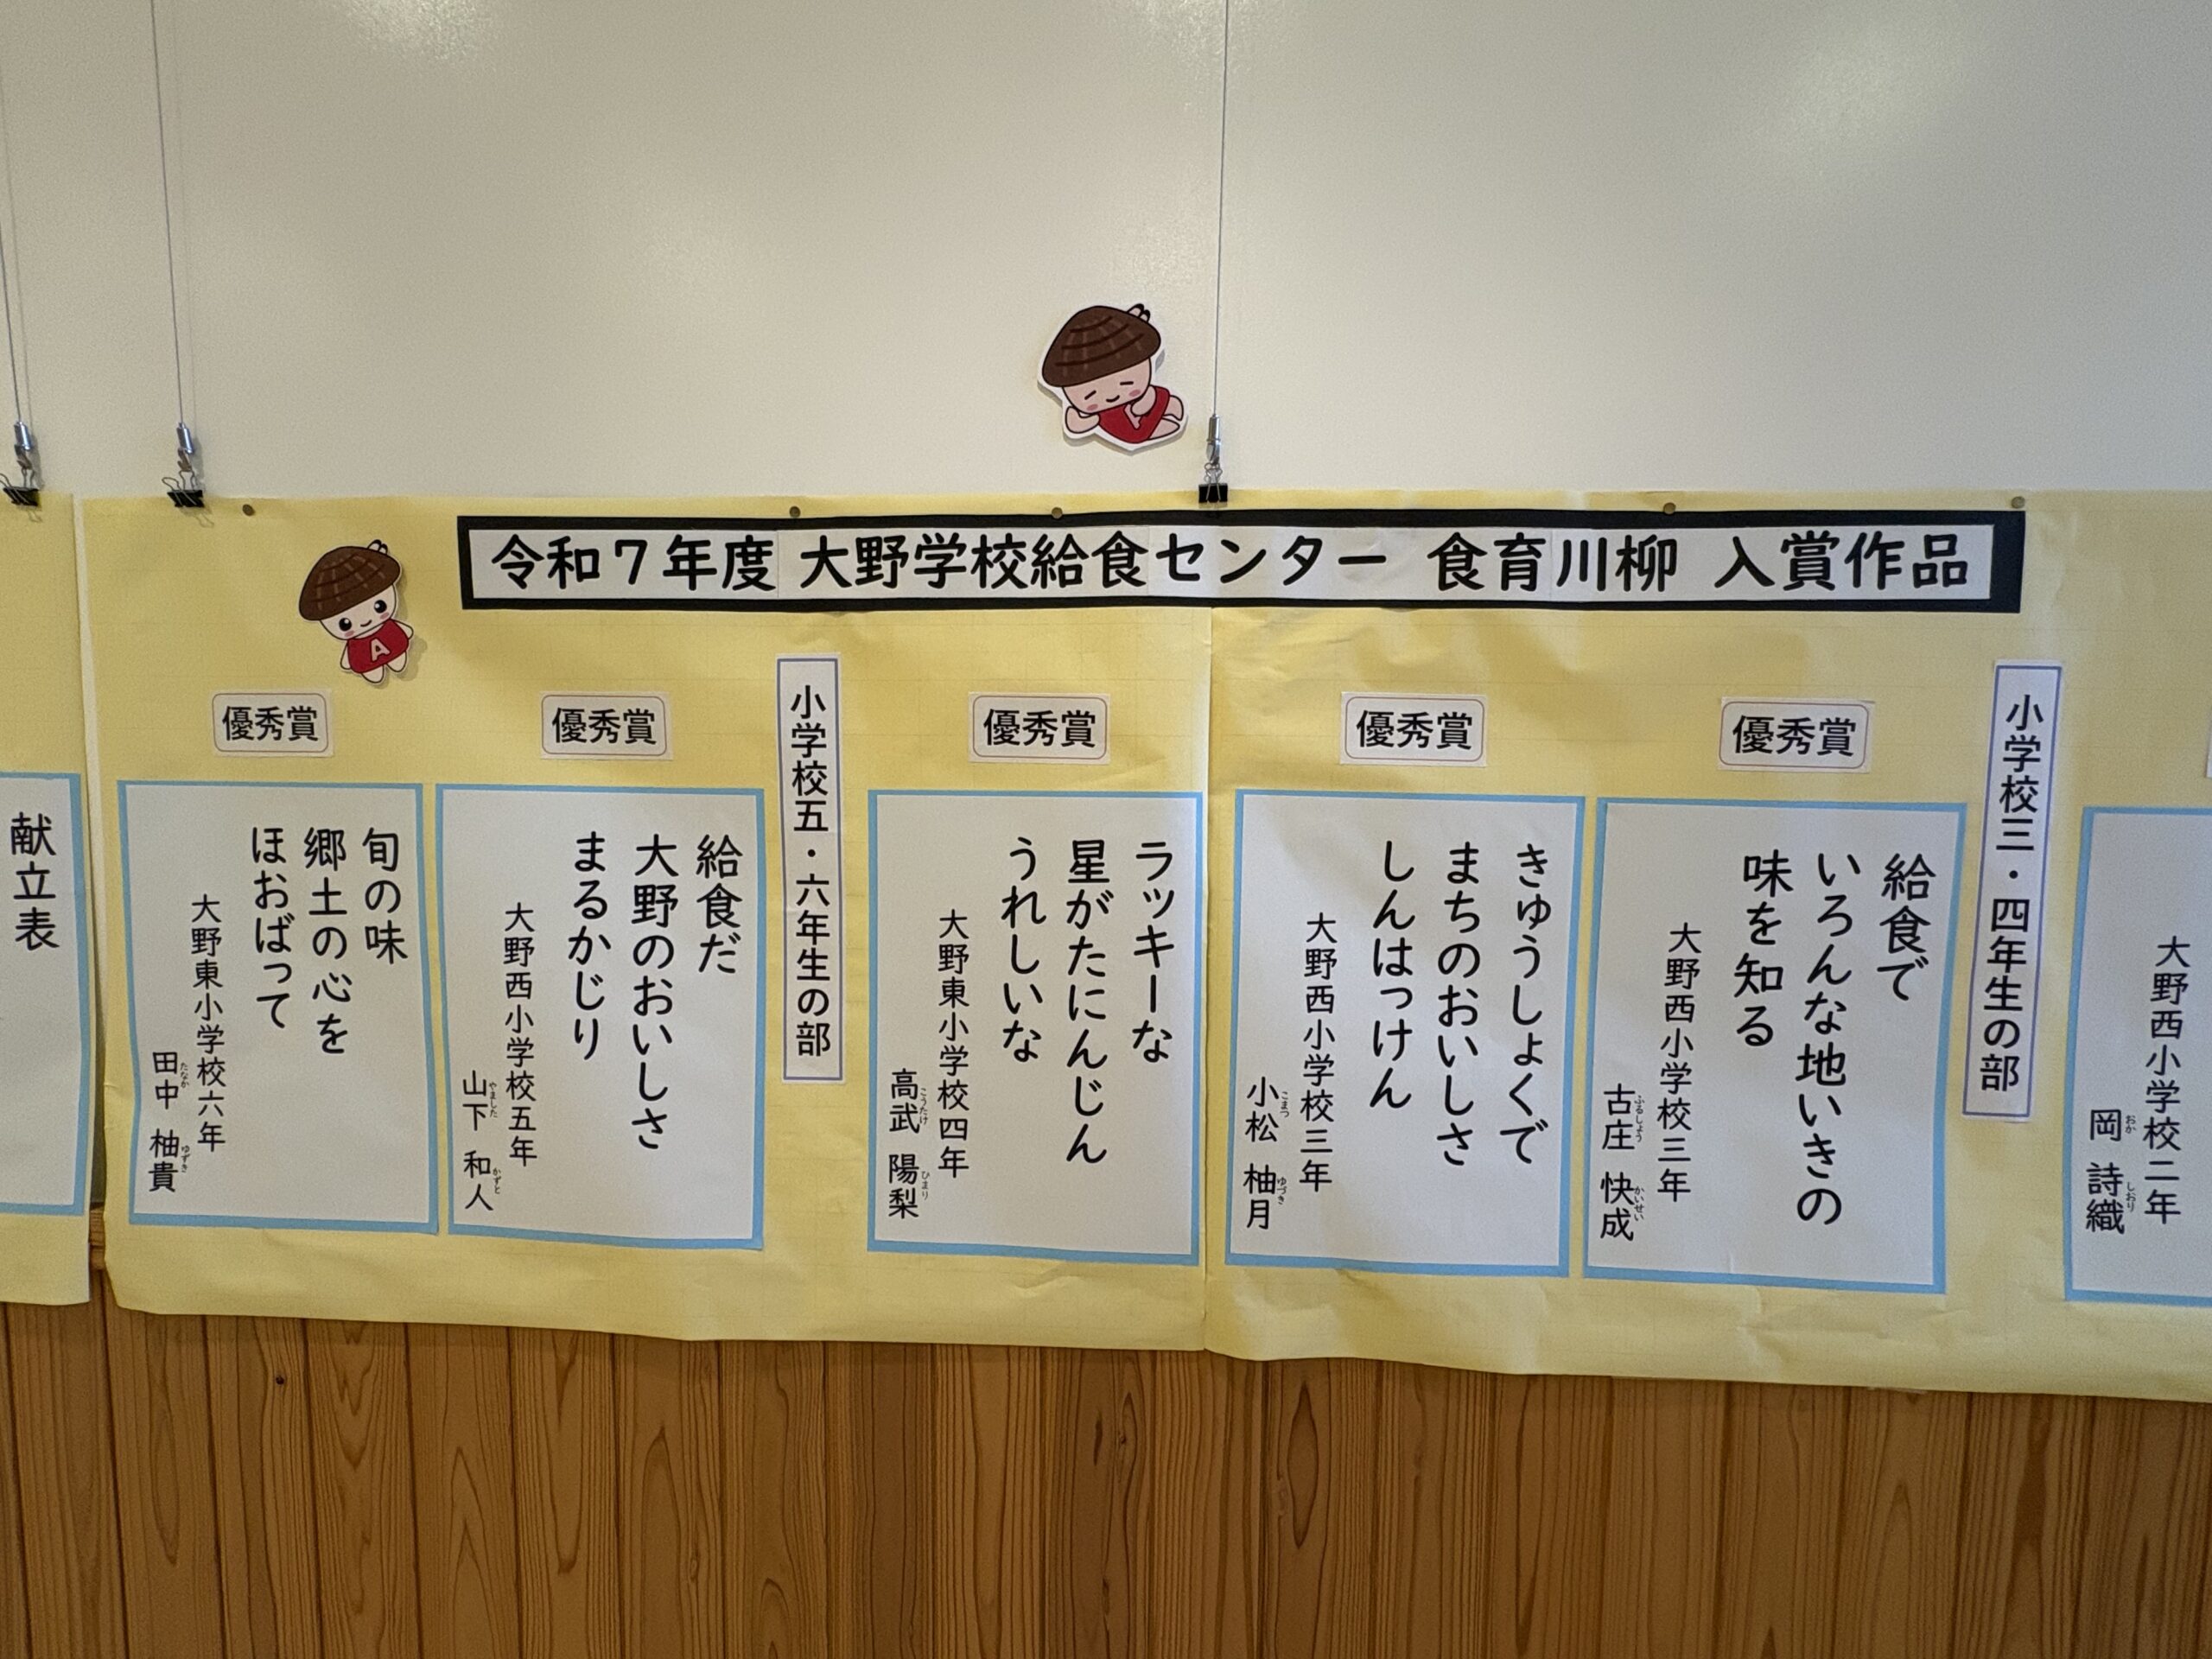 令和7年度 大野学校給食センター 食育川柳 入賞作品
大野西小学校二年
岡 詩織
おか しおり
小学校三・四年生の部
優秀賞
給食で
いろんな地いきの
味を知る
大野西小学校三年
古庄 快成
ふるしょう かいせい
優秀賞
きゅうしょくで
まちのおいしさ
しんはっけん
大野西小学校三年
小松 柚月
こまつ ゆづき
優秀賞
ラッキーな
星がたにんじん
うれしいな
大野東小学校四年
高武 陽梨
こうたけ ひまり
小学校五・六年生の部
優秀賞
給食だ
大野のおいしさ
まるかじり
大野西小学校五年
山下 和人
やました かずと
優秀賞
旬の味
郷土の心を
ほおばって
大野東小学校六年
田中 柚貴
たなか ゆずき
献立表
A